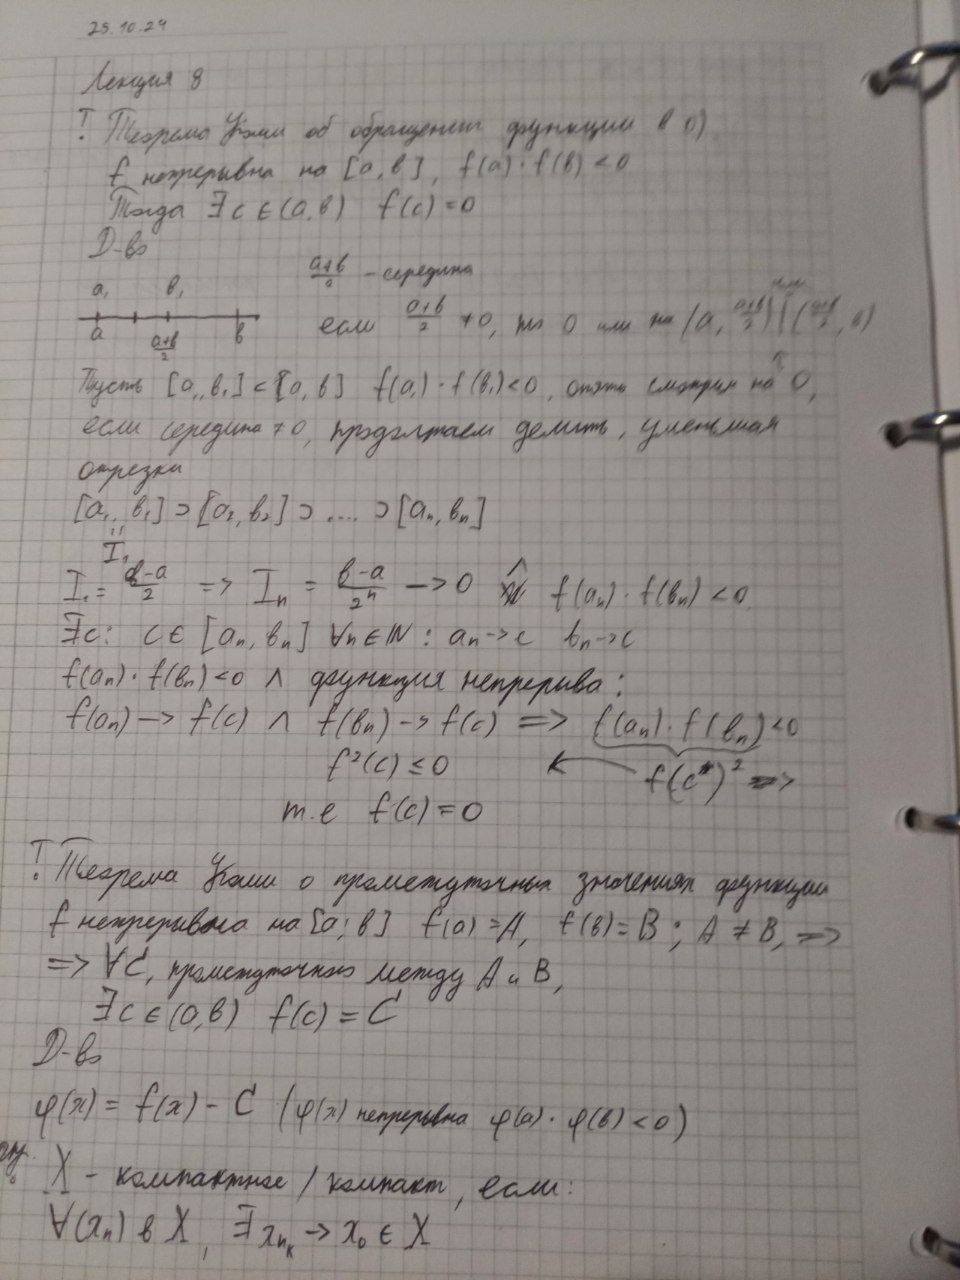 25.10.24
Лекция 8
Т! Теорема Коши об обращении функции в 0)
f непрерывна на [a,b], f(a)·f(b)<0
Тогда ∃c∈(a,b) f(c)=0
Д-во
a₁ b₁
a (a+b)/2 b
(a+b)/2 - середина
если (a+b)/2 ≠0, то 0 или на (a, (a+b)/2) | ((a+b)/2, b)
Пусть [a₁,b₁]⊂[a,b] f(a₁)·f(b₁)<0, опять смотрим на 0,
если середина ≠0, продолжаем делить, уменьшая
отрезки
[a₁,b₁]⊃[a₂,b₂]⊃....⊃[aₙ,bₙ]
=
I₁
I₁= (b-a)/2 => Iₙ = (b-a)/2ⁿ —>0 ∧ f(aₙ)·f(bₙ)<0
∃c: c∈[aₙ,bₙ] ∀n∈ℕ: aₙ->c bₙ->c
f(aₙ)·f(bₙ)<0 ∧ функция непрерыва:
f(aₙ)—>f(c) ∧ f(bₙ)->f(c) => f(aₙ)·f(bₙ)<0
f²(c)≤0 ← f(c*)² =>
т.е f(c)=0
Т! Теорема Коши о промежуточных значениях функции
f непрерывна на [a;b] f(a)=A, f(b)=B; A≠B, =>
=> ∀C, промежуточного между A и B,
∃c∈(a,b) f(c)=C
Д-во
φ(x)=f(x)-C (φ(x) непрерывна φ(a)·φ(b)<0)
Опр.
X - компактное / компакт, если:
∀(xₙ) в X, ∃xₙₖ->x₀∈X